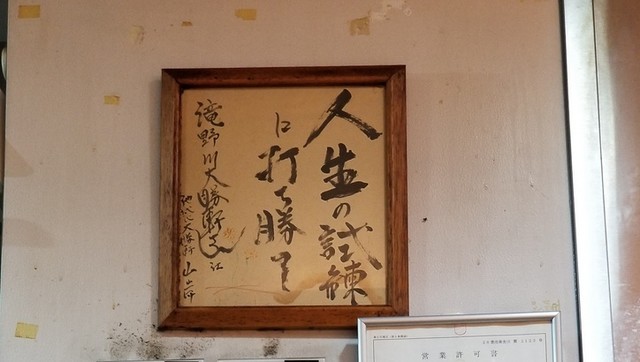 人生の試錬
に打ち勝て
滝野川大勝軒さん江
大勝軒
山岸
営業許可書